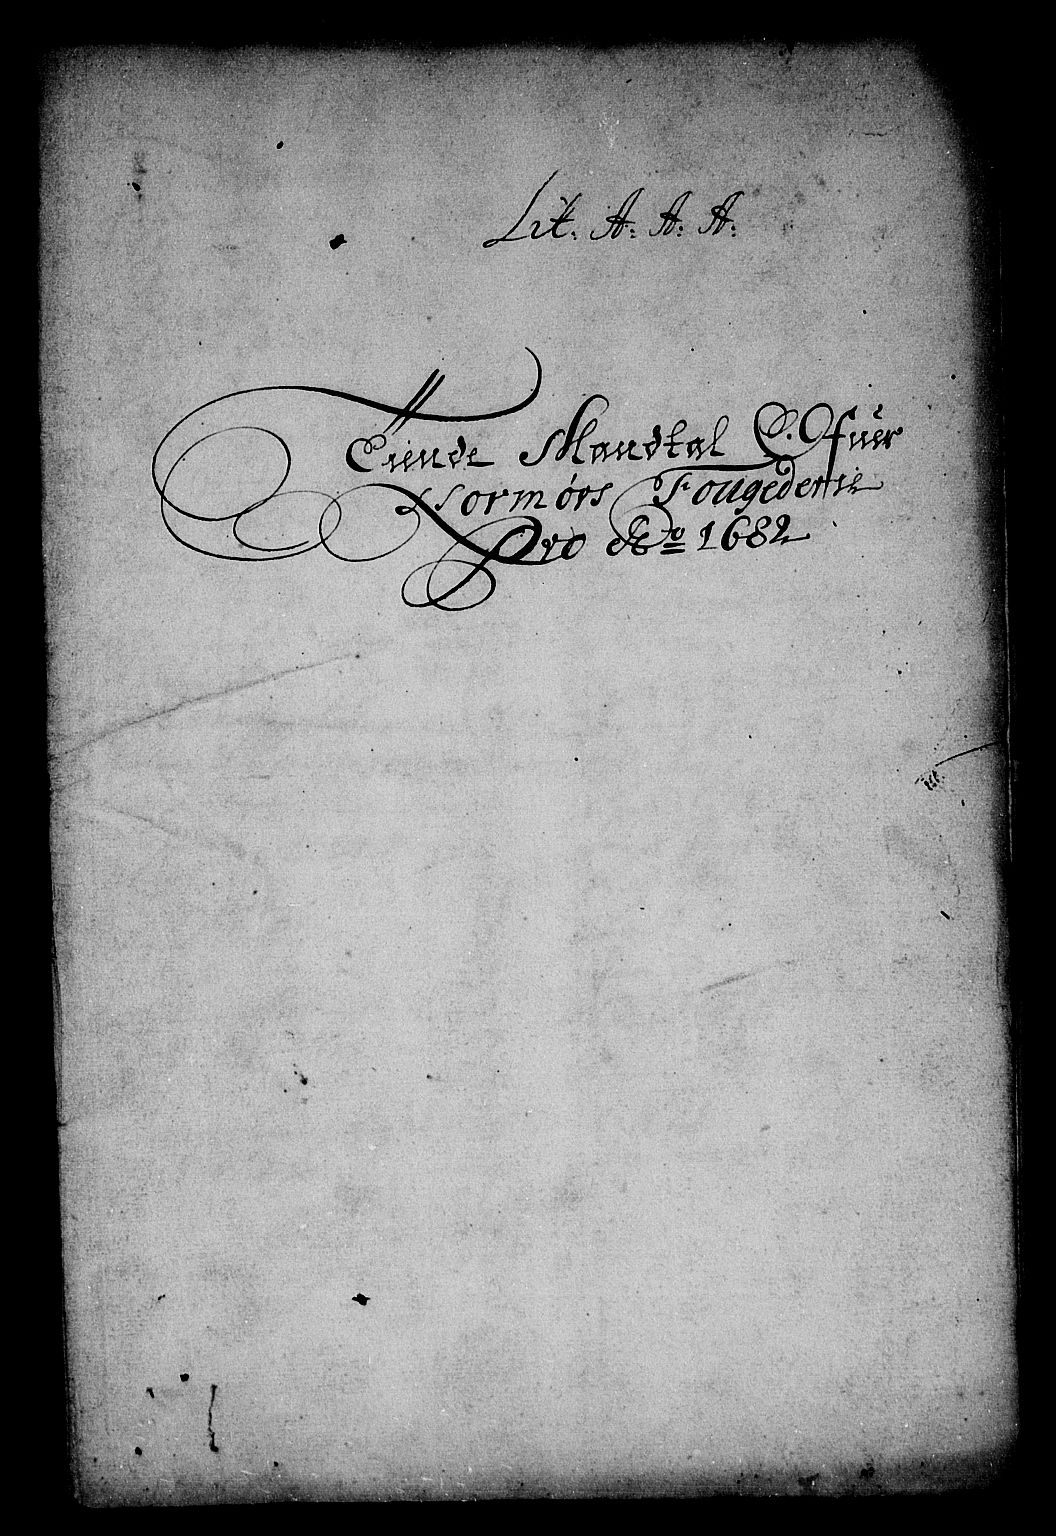 Lit. A: A: A:
Tiende Mandtal Ofuer
Normørs Fougederie
Pro Ao 1682